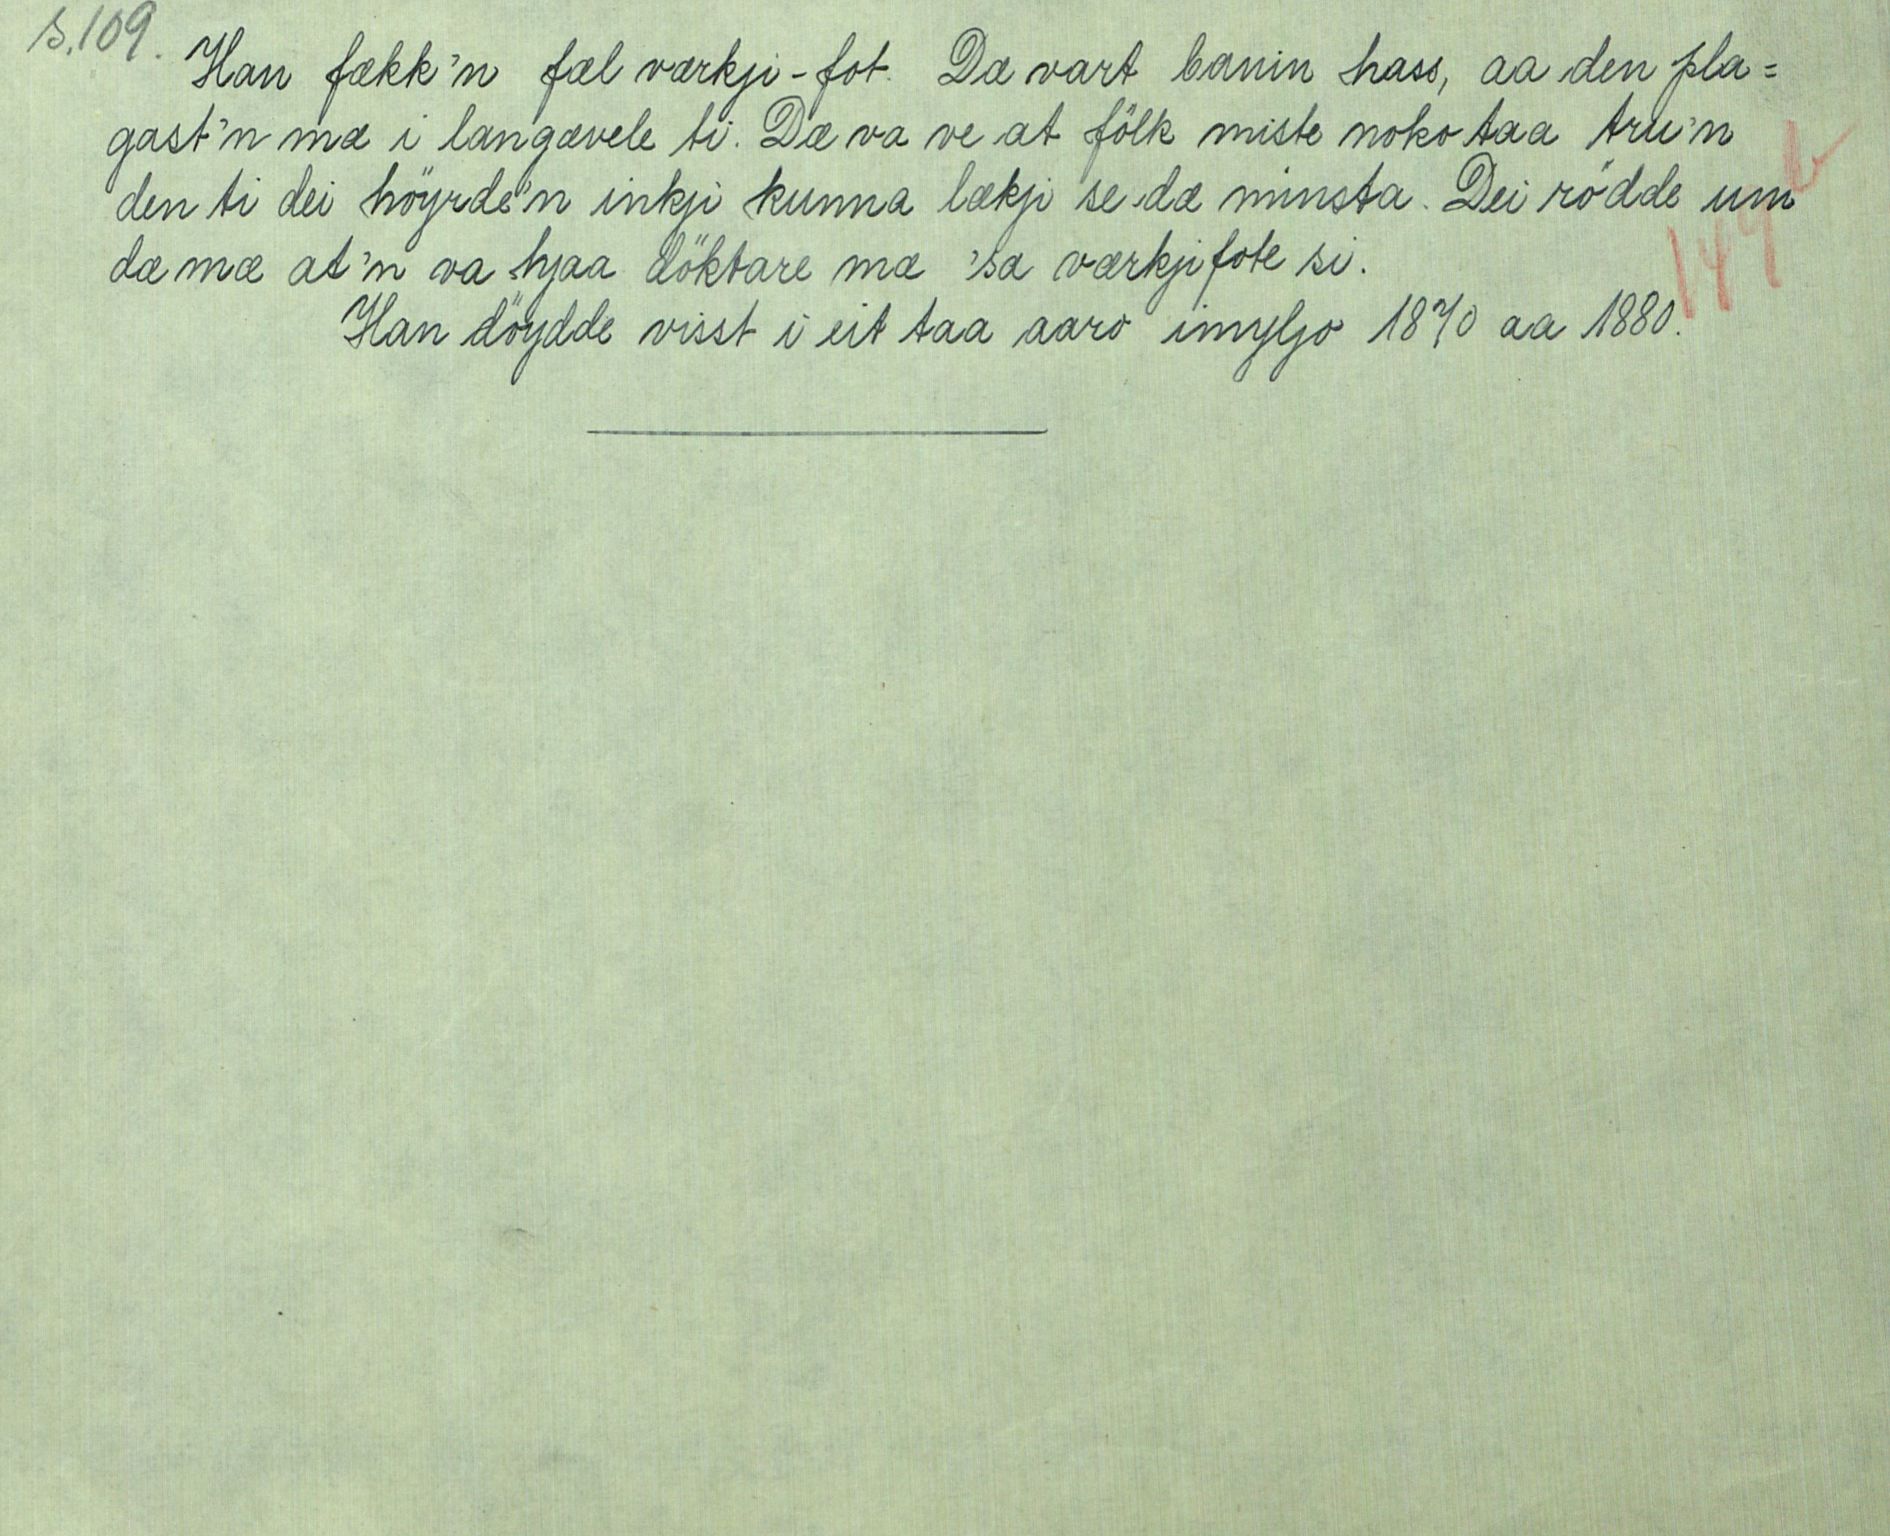 s. 109.
Han fækk'n fæl værkji-fot. Dæ vart banin hass, aa den pla=
gast'n mæ i langævele ti. Dæ va ve at fölk miste noko taa tru'n
den ti dei höyrde'n inkji kunna lækji se dæ minsta. Dei rödde um
dæ mæ at'n va hjaa döktare mæ 'sa værkjifote si.
149 b
Han döydde visst i eit taa aaro imyljo 1870 aa 1880.